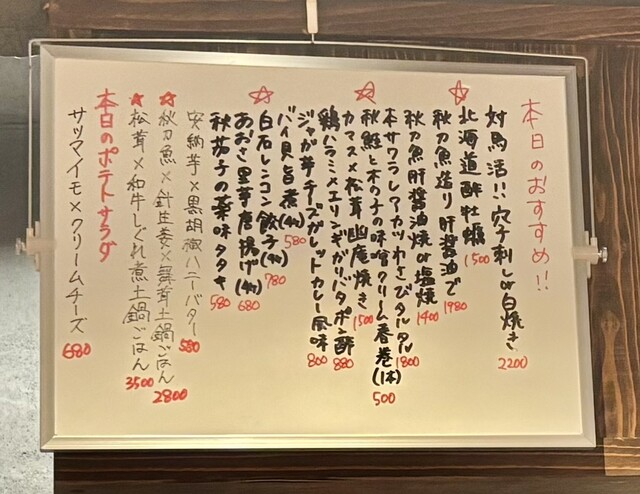 本日のおすすめ!!
対馬活!! 穴子刺し or 白焼き 2200
北海道酢牡蠣 1500
☆秋刀魚造り 肝醤油で 1980
秋刀魚肝醤油焼 or 塩焼 1400
本サワラレアカツわさびタルタル 1800
秋鮭と木の子の味噌クリーム春巻(1本) 500
☆カマス×松茸幽庵焼き 1500
鶏ハラミ×エリンギガリバタポン酢 880
ジャガ芋チーズガレットカレー風味 800
バイ貝旨煮(4ヶ) 580
☆白石レンコン餃子(4ヶ) 780
あおさ里芋唐揚げ(4ヶ) 680
秋茄子の薬味タタキ 580
安納芋×黒胡椒ハニーバター 580
☆秋刀魚×針生姜×舞茸土鍋ごはん 2800
★松茸×和牛しぐれ煮土鍋ごはん 3500
本日のポテトサラダ
サツマイモ×クリームチーズ 680